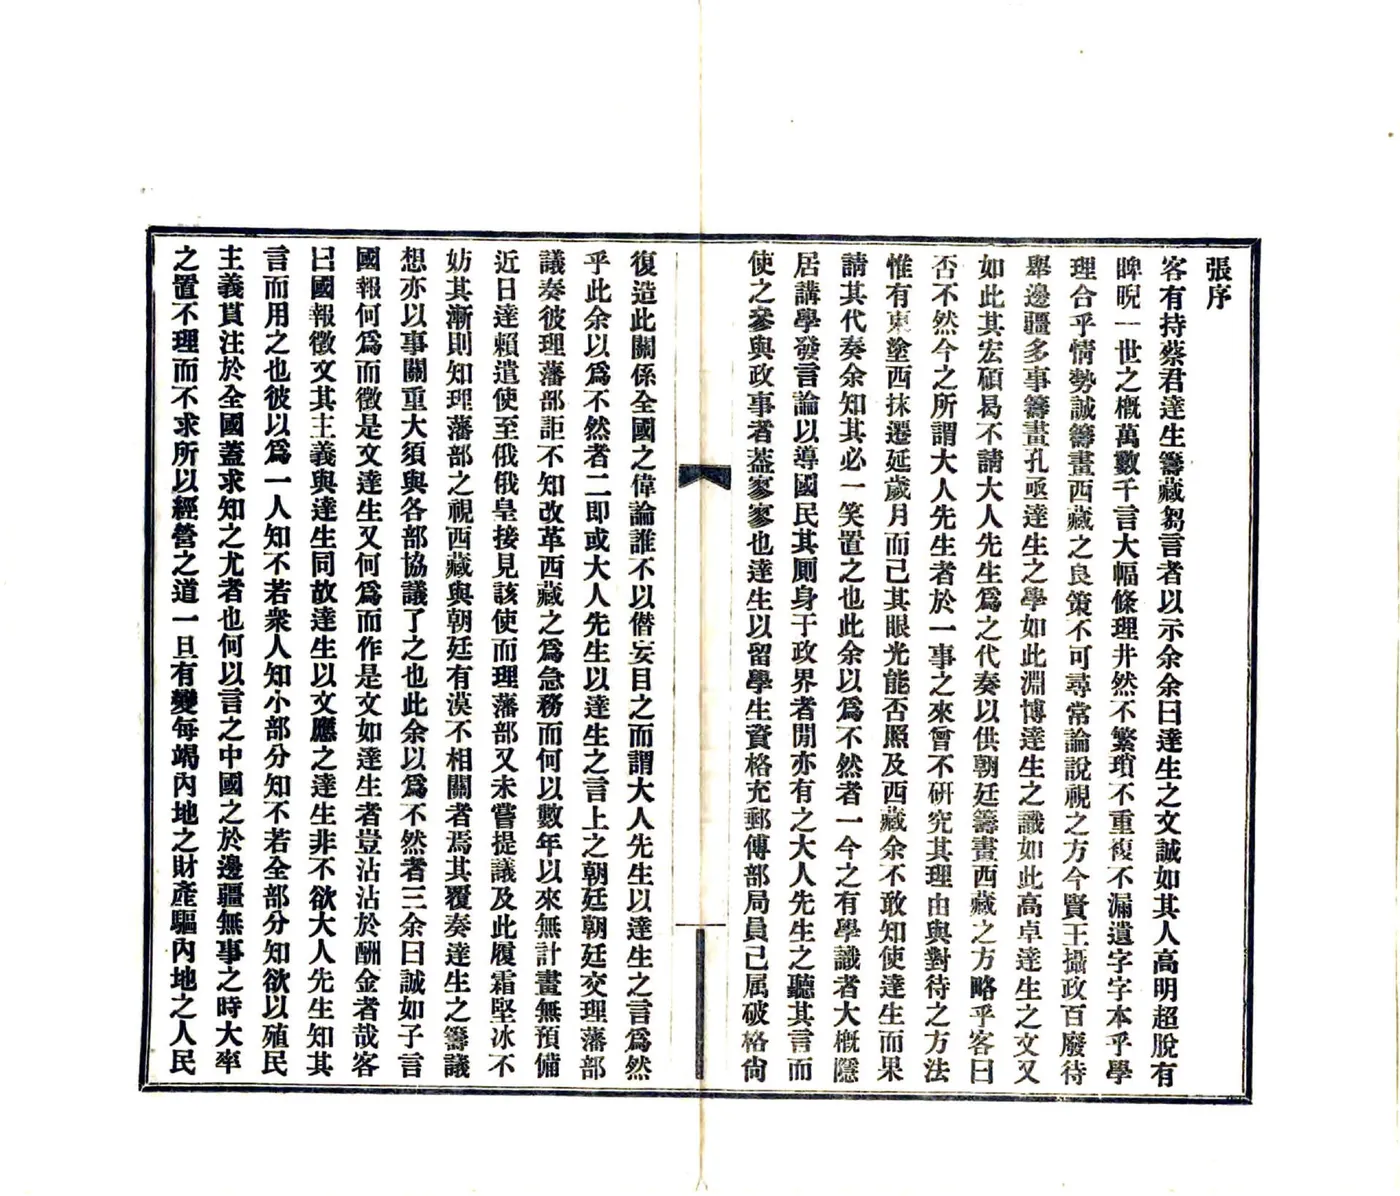 張序
客有持蔡君達生籌藏芻言者以示余余曰達生之文誠如其人高明超脫有
睥睨一世之概萬數千言大幅條理井然不繁瑣不重複不漏遺字字本乎學
理合乎情勢誠籌畫西藏之良策不可尋常論說視之方今賢王攝政百廢待
舉邊疆多事籌畫孔亟達生之學如此淵博達生之識如此高卓達生之文又
如此其宏碩曷不請大人先生爲之代奏以供朝廷籌畫西藏之方略乎客曰
否不然今之所謂大人先生者於一事之來曾不硏究其理由與對待之方法
惟有東塗西抹遷延歲月而已其眼光能否照及西藏余不敢知使達生而果
請其代奏余知其必一笑置之也此余以爲不然者一今之有學識者大概隱
居講學發言論以導國民其厠身于政界者間亦有之大人先生之聽其言而
使之參與政事者葢寥寥也達生以留學生資格充郵傳部局員已属破格尙
復造此關係全國之偉論誰不以僭妄目之而謂大人先生以達生之言爲然
乎此余以爲不然者二卽或大人先生以達生之言上之朝廷朝廷交理藩部
議奏彼理藩部詎不知改革西藏之爲急務而何以數年以來無計畫無預備
近日達賴遣使至俄俄皇接見該使而理藩部又未嘗提議及此履霜堅冰不
妨其漸則知理藩部之視西藏與朝廷有漠不相關者焉其覆奏達生之籌議
想亦以事關重大須與各部協議了之也此余以爲不然者三余曰誠如子言
國報何爲而徵是文達生又何爲而作是文如達生者豈沾沾於酬金者哉客
曰國報徵文其主義與達生同故達生以文應之達生非不欲大人先生知其
言而用之也彼以爲一人知不若衆人知小部分知不若全部分知欲以殖民
主義貫注於全國蓋求知之尤者也何以言之中國之於邊疆無事之時大率
之置不理而不求所以經營之道一旦有變每竭內地之財產驅內地之人民